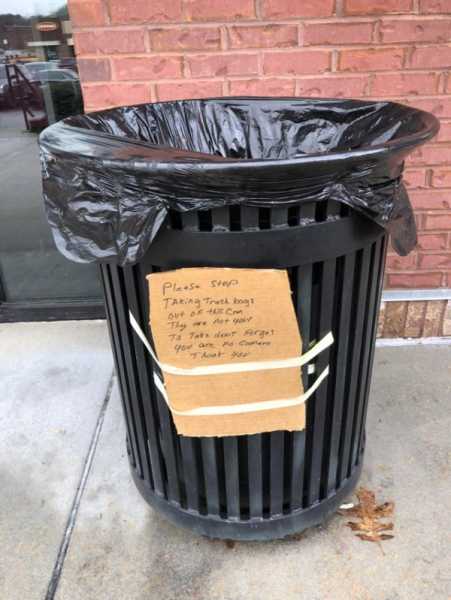 Please Stop
TAking Trash bags
out of this Can
They are Not your
To Take don't Forget
you are no Camera
Thank you